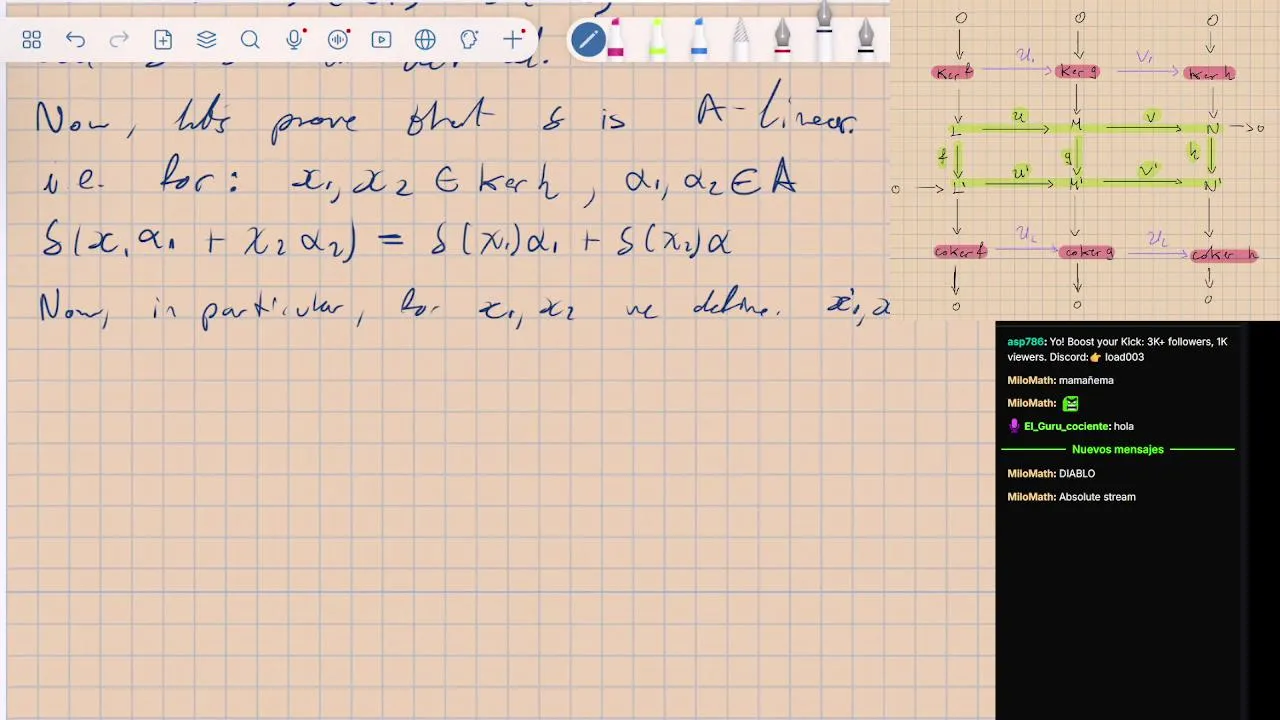 Now, let's prove that δ is A-linear.
i.e. for: x1, x2 ∈ ker h, α1, α2 ∈ A
δ(x1 α1 + x2 α2) = δ(x1)α1 + δ(x2)α
Now, in particular, for x1, x2 we define. x'1, x
0 0 0
ker f u1 ker g v1 ker h
L u M v N → 0
f g h
0 → L' u' M' v' N'
coker f u2 coker g u2 coker h
0 0 0
asp786: Yo! Boost your Kick: 3K+ followers, 1K
viewers. Discord:👉 load003
MiloMath: mamañema
MiloMath:
El_Guru_cociente: hola
Nuevos mensajes
MiloMath: DIABLO
MiloMath: Absolute stream